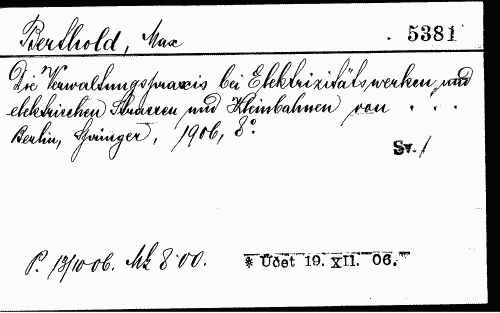 Berthold, Max . 5381
Die Verwaltungspraxis bei Elektrizitätswerken und
elektrischen Strassen und Kleinbahnen von . . .
Berlin, Springer, 1906, 8°.
Sv. /
P. 13/10 06. Mk 8·00. * Účet 19. XII. 06.